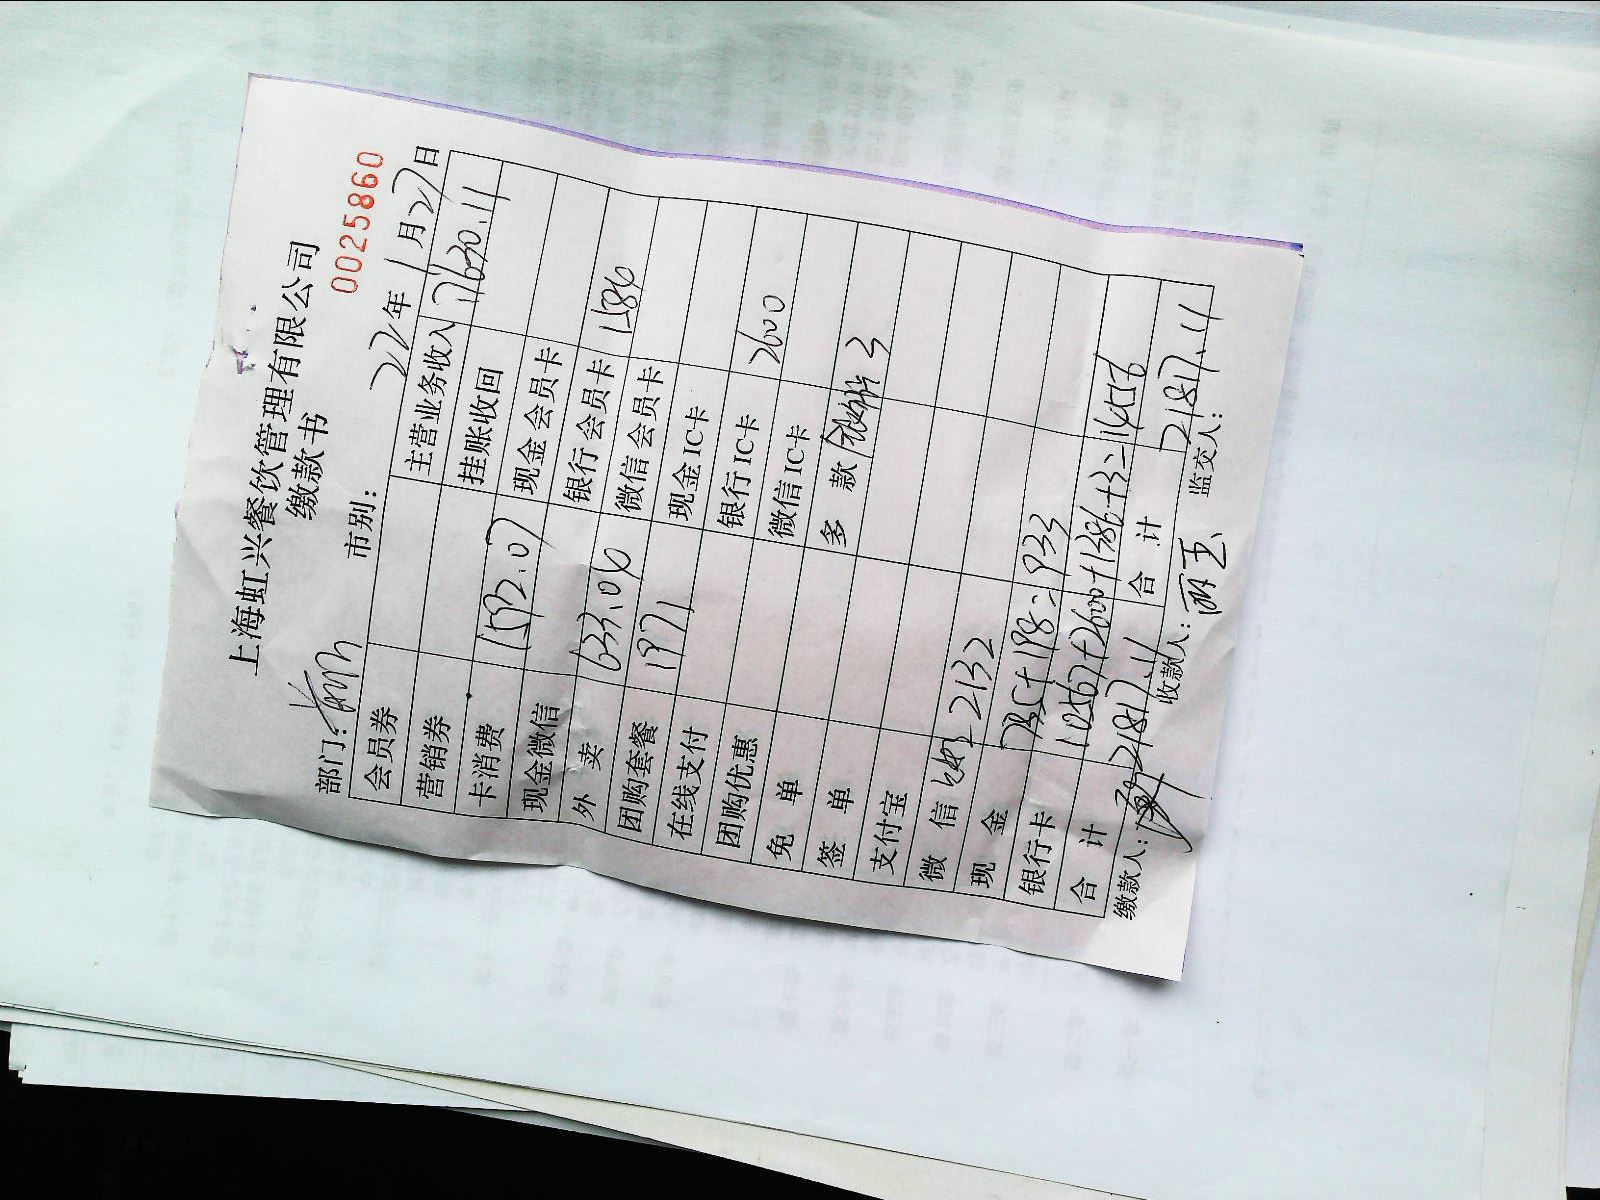 上海虹兴餐饮管理有限公司
缴款书
0025860
部门: 市别: 22年 1月27日
会员券 主营业务收入 17630.11
营销券 挂账收回
卡消费 1592.07 现金会员卡
现金微信 银行会员卡
外 卖 633.04 微信会员卡 1586
团购套餐 1971 现金IC卡
在线支付 银行IC卡
团购优惠 微信IC卡 2600
免 单 多 款 3
签 单
支付宝
微 信 2132
现 金 735+198=933
银行卡 10267+2600+1586+3=14456
合 计 21817.11 合 计 21817.11
缴款人: 收款人: 监交人: